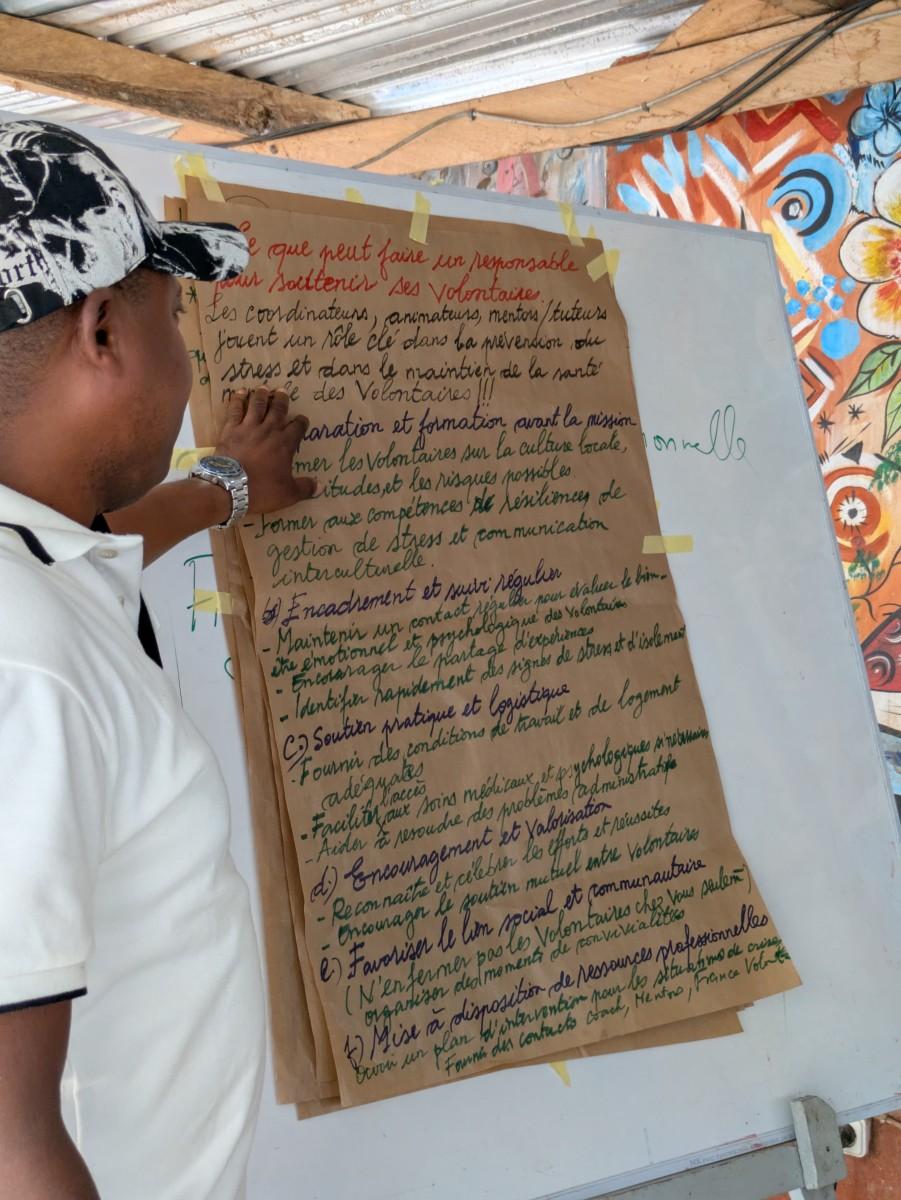 ort
Ce que peut faire un responsable
pour soutenir ses Volontaires.
Les coordinateurs, animateurs, mentors/tuteurs
jouent un rôle clé dans la prévention du
stress et dans le maintien de la santé
des Volontaires !!!
paration et formation avant la mission
mer les Volontaires sur la culture locale,
itudes, et les risques possibles
- Former aux compétences de résiliences, de
gestion de stress et communication
interculturelle.
b) Encadrement et suivi régulier
- Maintenir un contact régulier pour évaluer le bien-
être émotionnel et psychologique des Volontaires
- Encourager le partage d'expériences
- Identifier rapidement des signes de stress et d'isolement
C.) Soutien pratique et logistique
- Fournir des conditions de travail et de logement
adéquates
- Faciliter l'accès aux soins médicaux et psychologiques si nécessaire
- Aider à resoudre des problèmes administratifs
d.) Encouragement et Valorisation
- Reconnaître et célébrer les efforts et réussites
- Encourager le soutien mutuel entre Volontaires
e) Favoriser le lien social et communautaire
(N'enfermer pas les Volontaires chez Vous seulem)
organiser des moments de convivialités
f) Mise à disposition de ressources professionnelles
Avoir un plan d'intervention pour les situations de crises
Fournir des contacts coach, Mentors, France Volont
onnelle